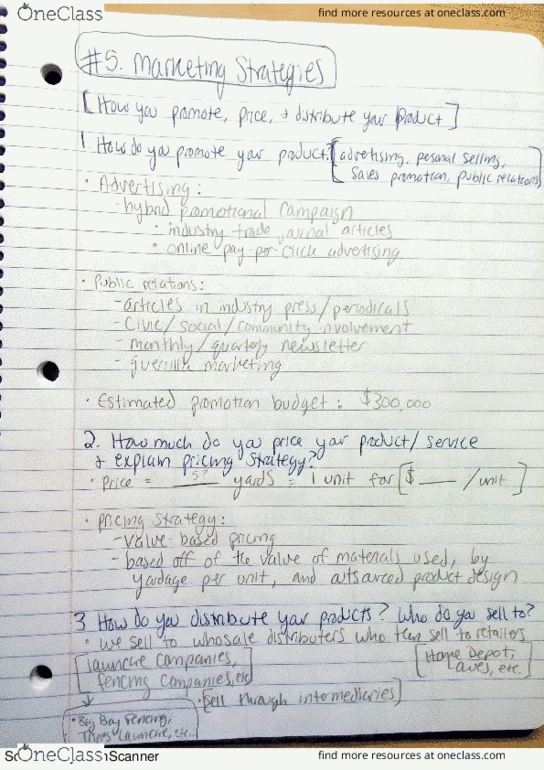 OneClass
find more resources at oneclass.com
#5. Marketing Strategies
[How you promote, price, + distribute your product]
1 How do you promote your product? [advertising, pesonal selling,
sales promotion, public relations]
· Advertising:
- hybrid promotional campaign
· industry trade jounal articles
· online pay-per-click advertising
· Public relations:
- articles in industry press/periodicals
- Civic/social/community involvement
- monthly/quartely newsletter
- guerilla marketing
· Estimated promotion budget: $300,000
2. How much do you price your product/service
+ explain pricing strategy?
· Price = __5?__ yards = 1 unit for [$ ___ /unit]
· pricing strategy:
- Value-based pricing
- based off of the value of materials used, by
yardage per unit, and outsourced product design
3 How do you distribute your products? Who do you sell to?
· We sell to whosale distributers who then sell to retailers
[launcare companies,
fencing companies, etc]
[Home Depot,
Lowes, etc.]
· [Sell through intermedieries]
· Big Bay Fencing,
Launcare, etc...
OneClass
Scanner
find more resources at oneclass.com